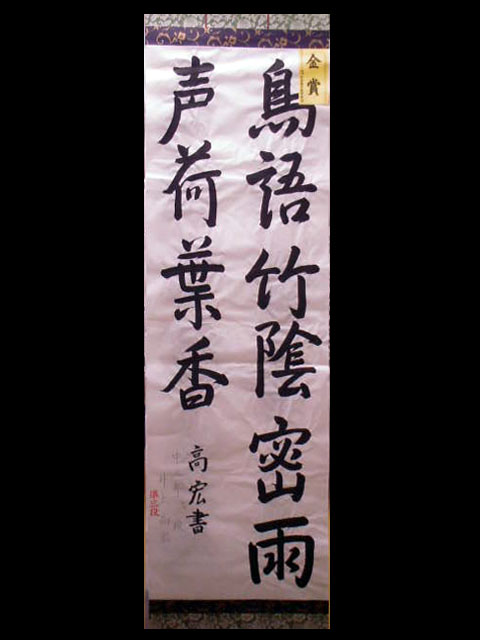 金賞
鳥語竹陰密雨
声荷葉香
高宏書